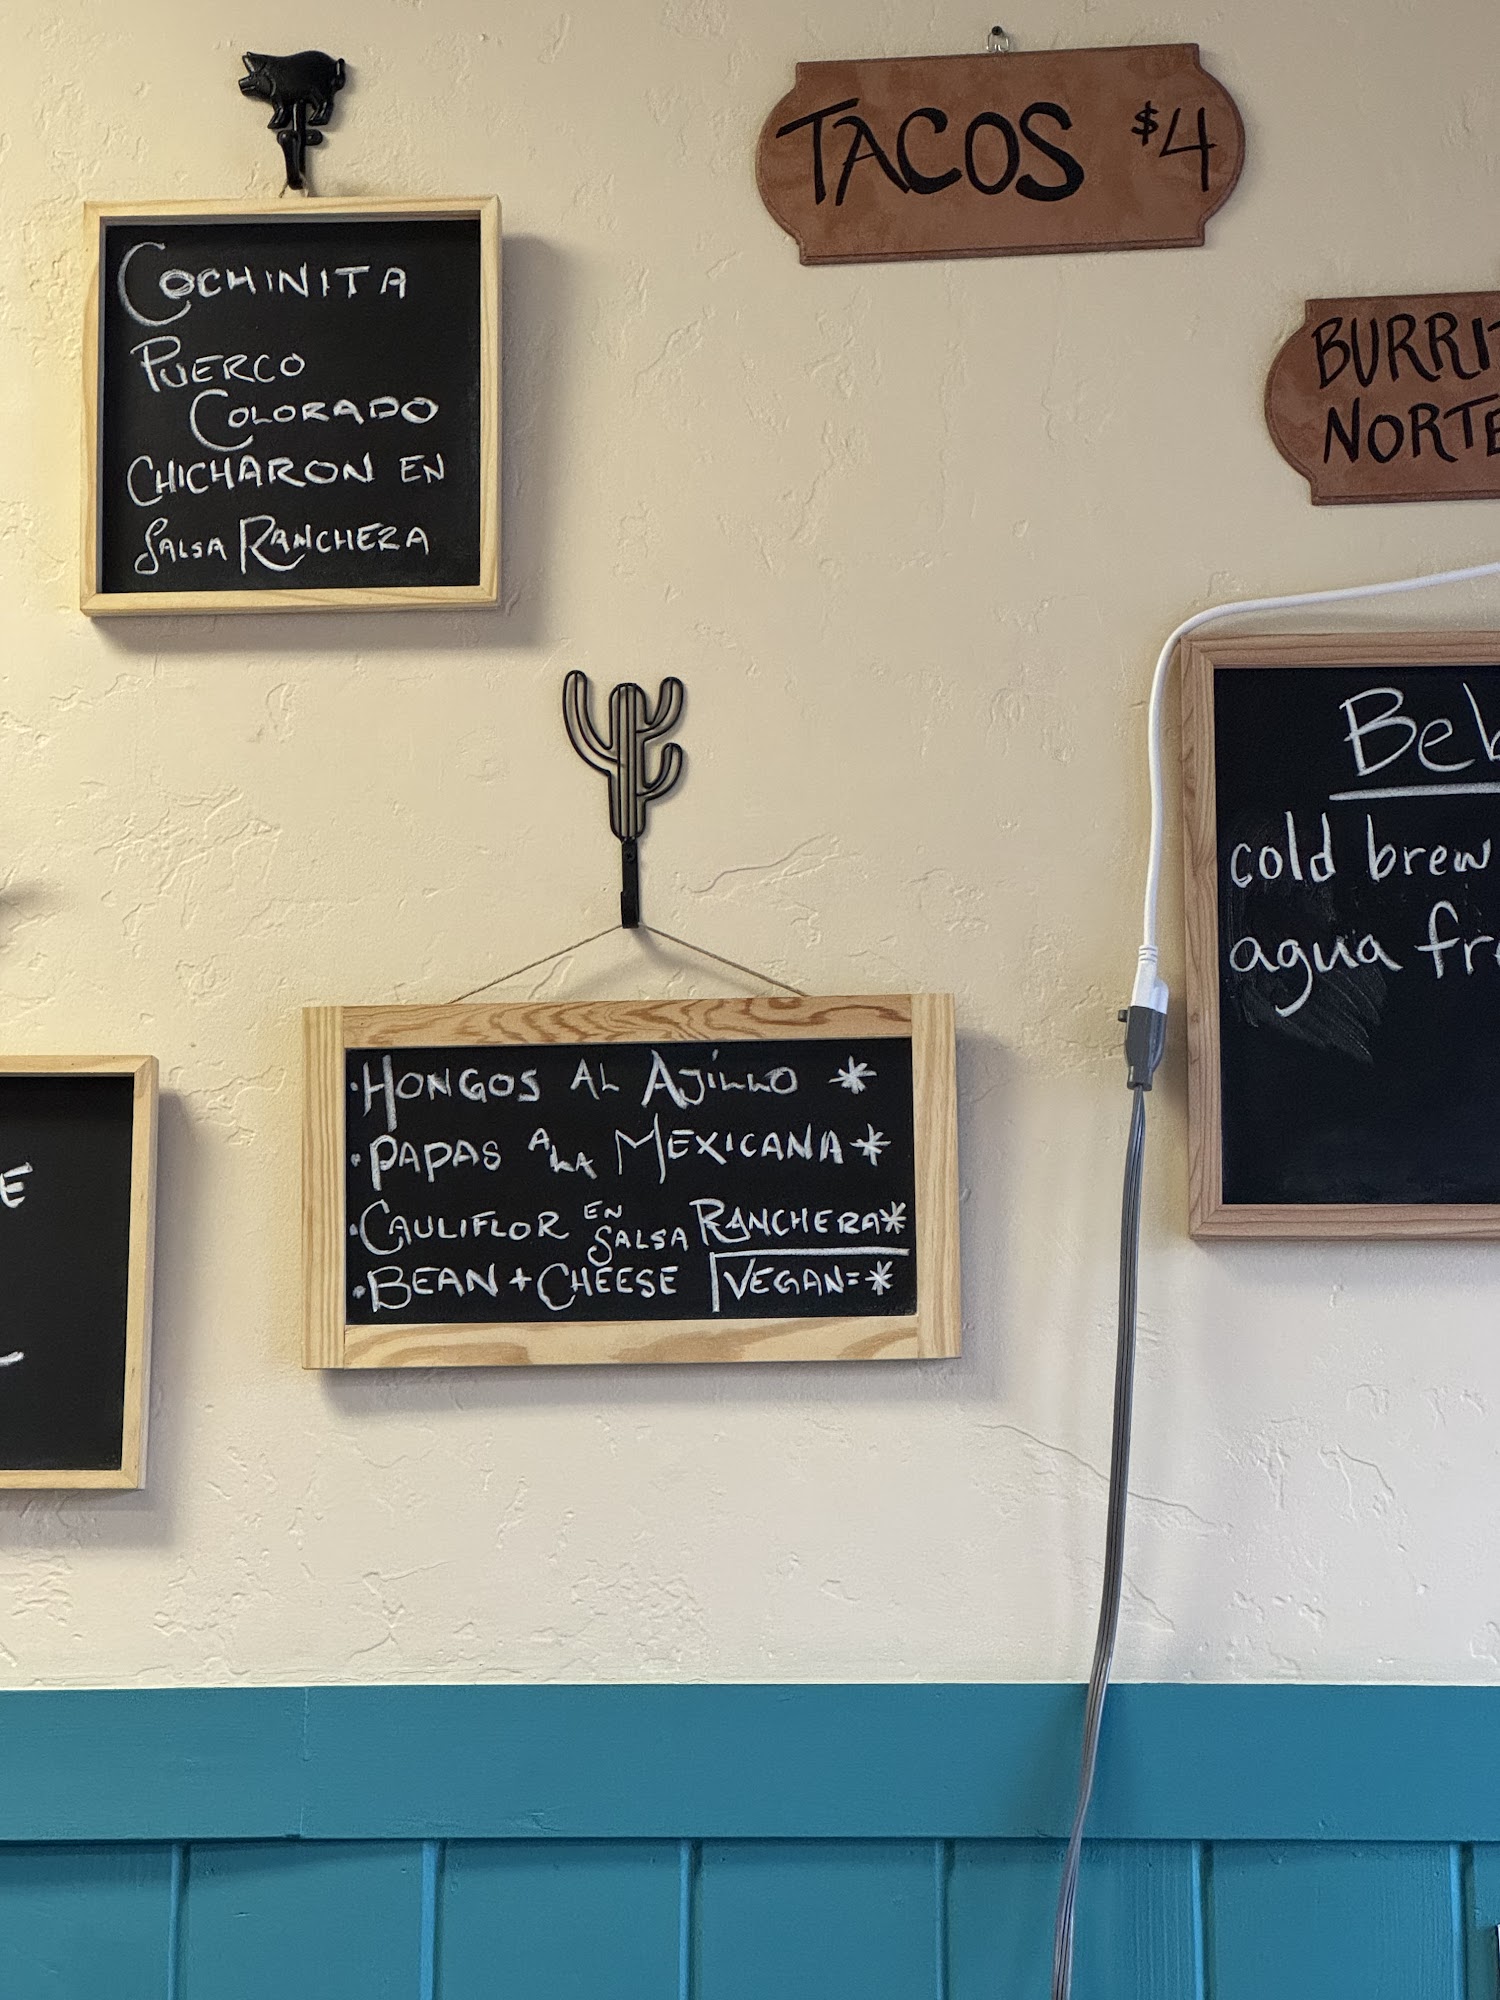 TACOS $4
COCHINITA
PUERCO
COLORADO
CHICHARON EN
SALSA RANCHERA
BURRIT
NORTE
Beb
cold brew
agua fre
·HONGOS AL AJÍLLO *
·PAPAS A LA MEXICANA *
·CAULIFLOR EN SALSA RANCHERA*
·BEAN + CHEESE VEGAN=*
E